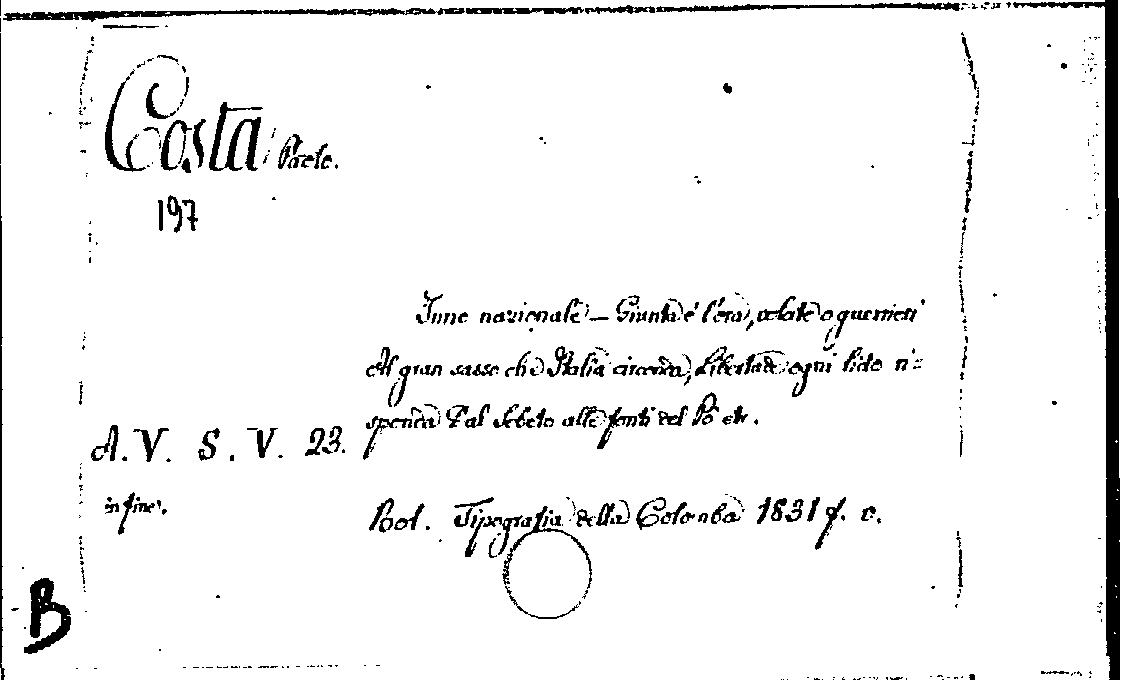 Costa Paolo.
197
Inno nazionale — Giunta é l'ora, volate o guerrieri
Al gran sasso che Italia circonda, Libertade ogni lido ri=
sponda Dal Sebeto alle fonti del Pò etc.
A. V. S. V. 23.
in fine.
Bol. Tipografia della Colomba 1831 f. v.
B